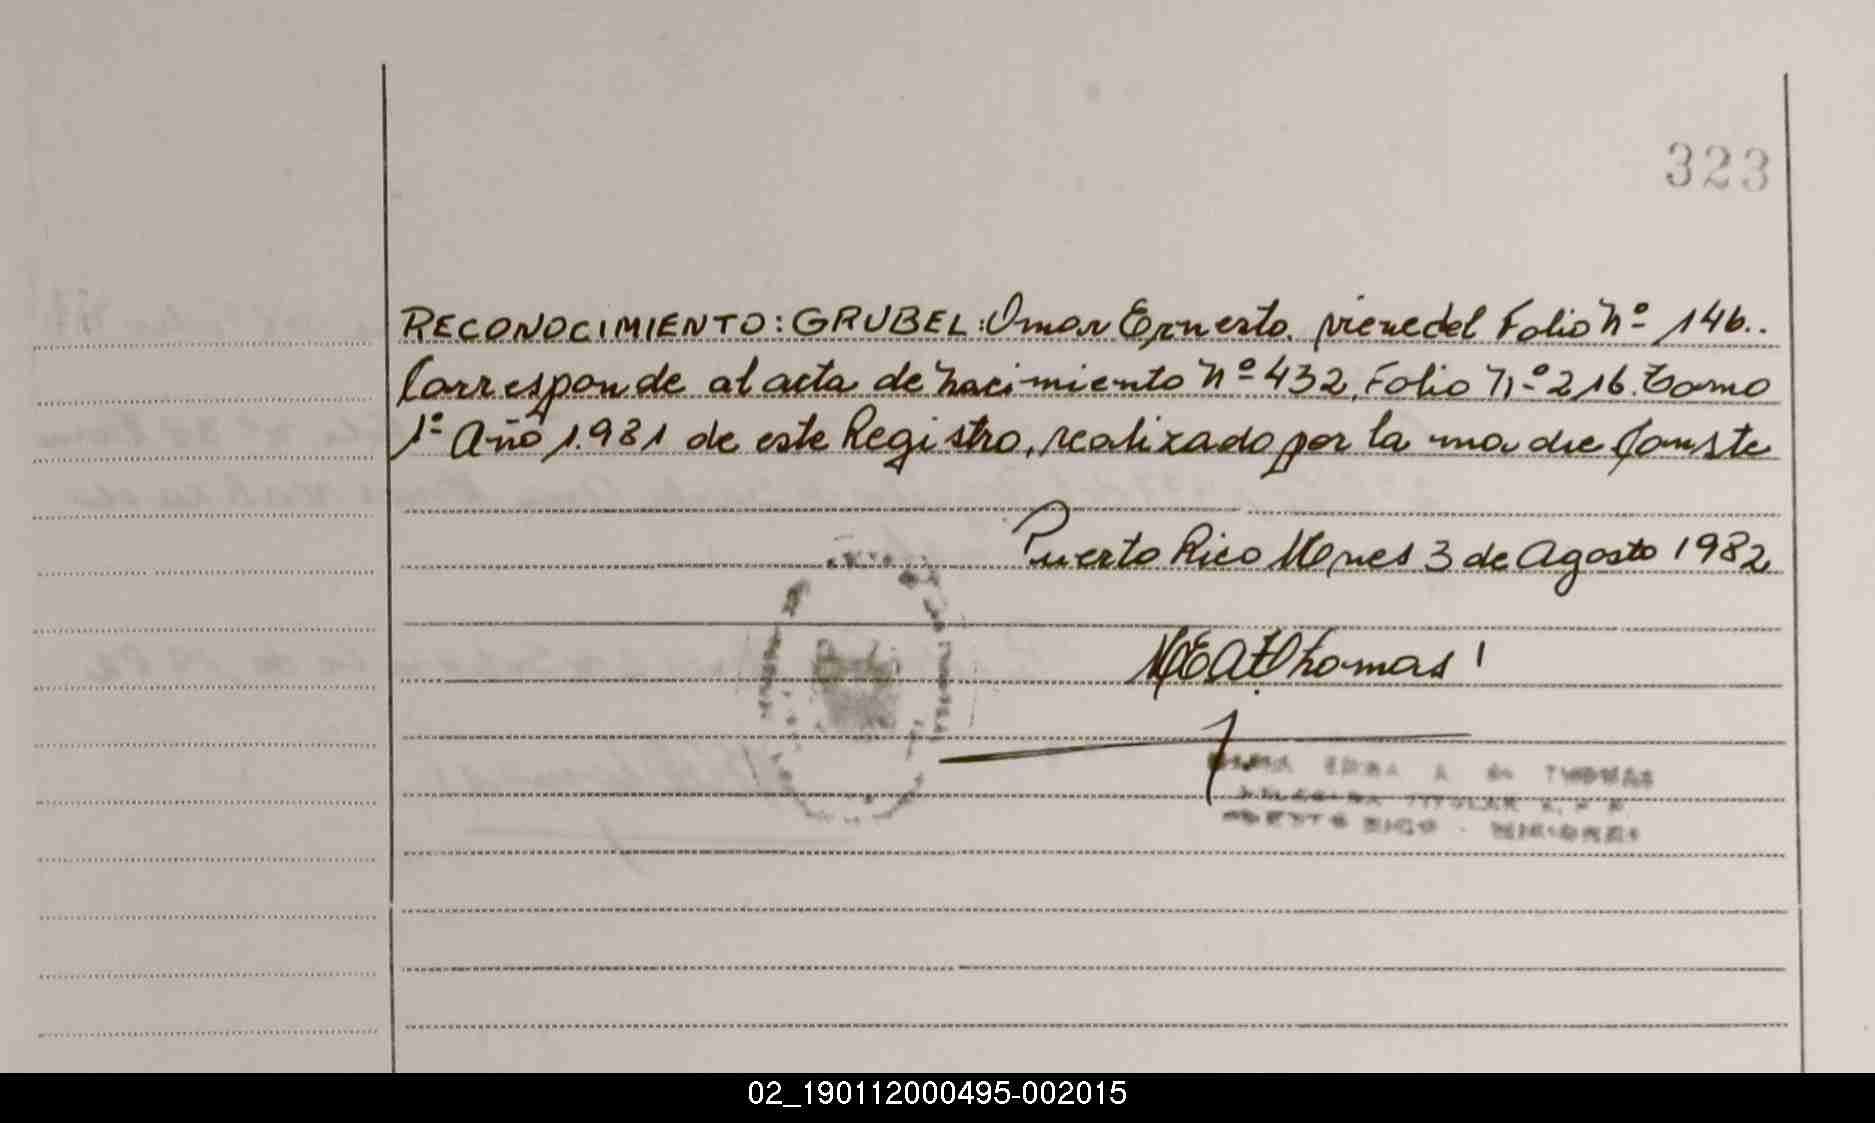 323
RECONOCIMIENTO: GRUBEL: Omar Ernesto. viene del Folio Nº 146..
Corresponde al acta de Nacimiento Nº 432, Folio Nº 216. Tomo
1º Año 1.981 de este Registro, realizado por la madre Conste
Puerto Rico Mnes 3 de Agosto 1982
Thomas
ERNA A de THOMAS
TITULAR
PUERTO RICO - MISIONES
02_190112000495-002015